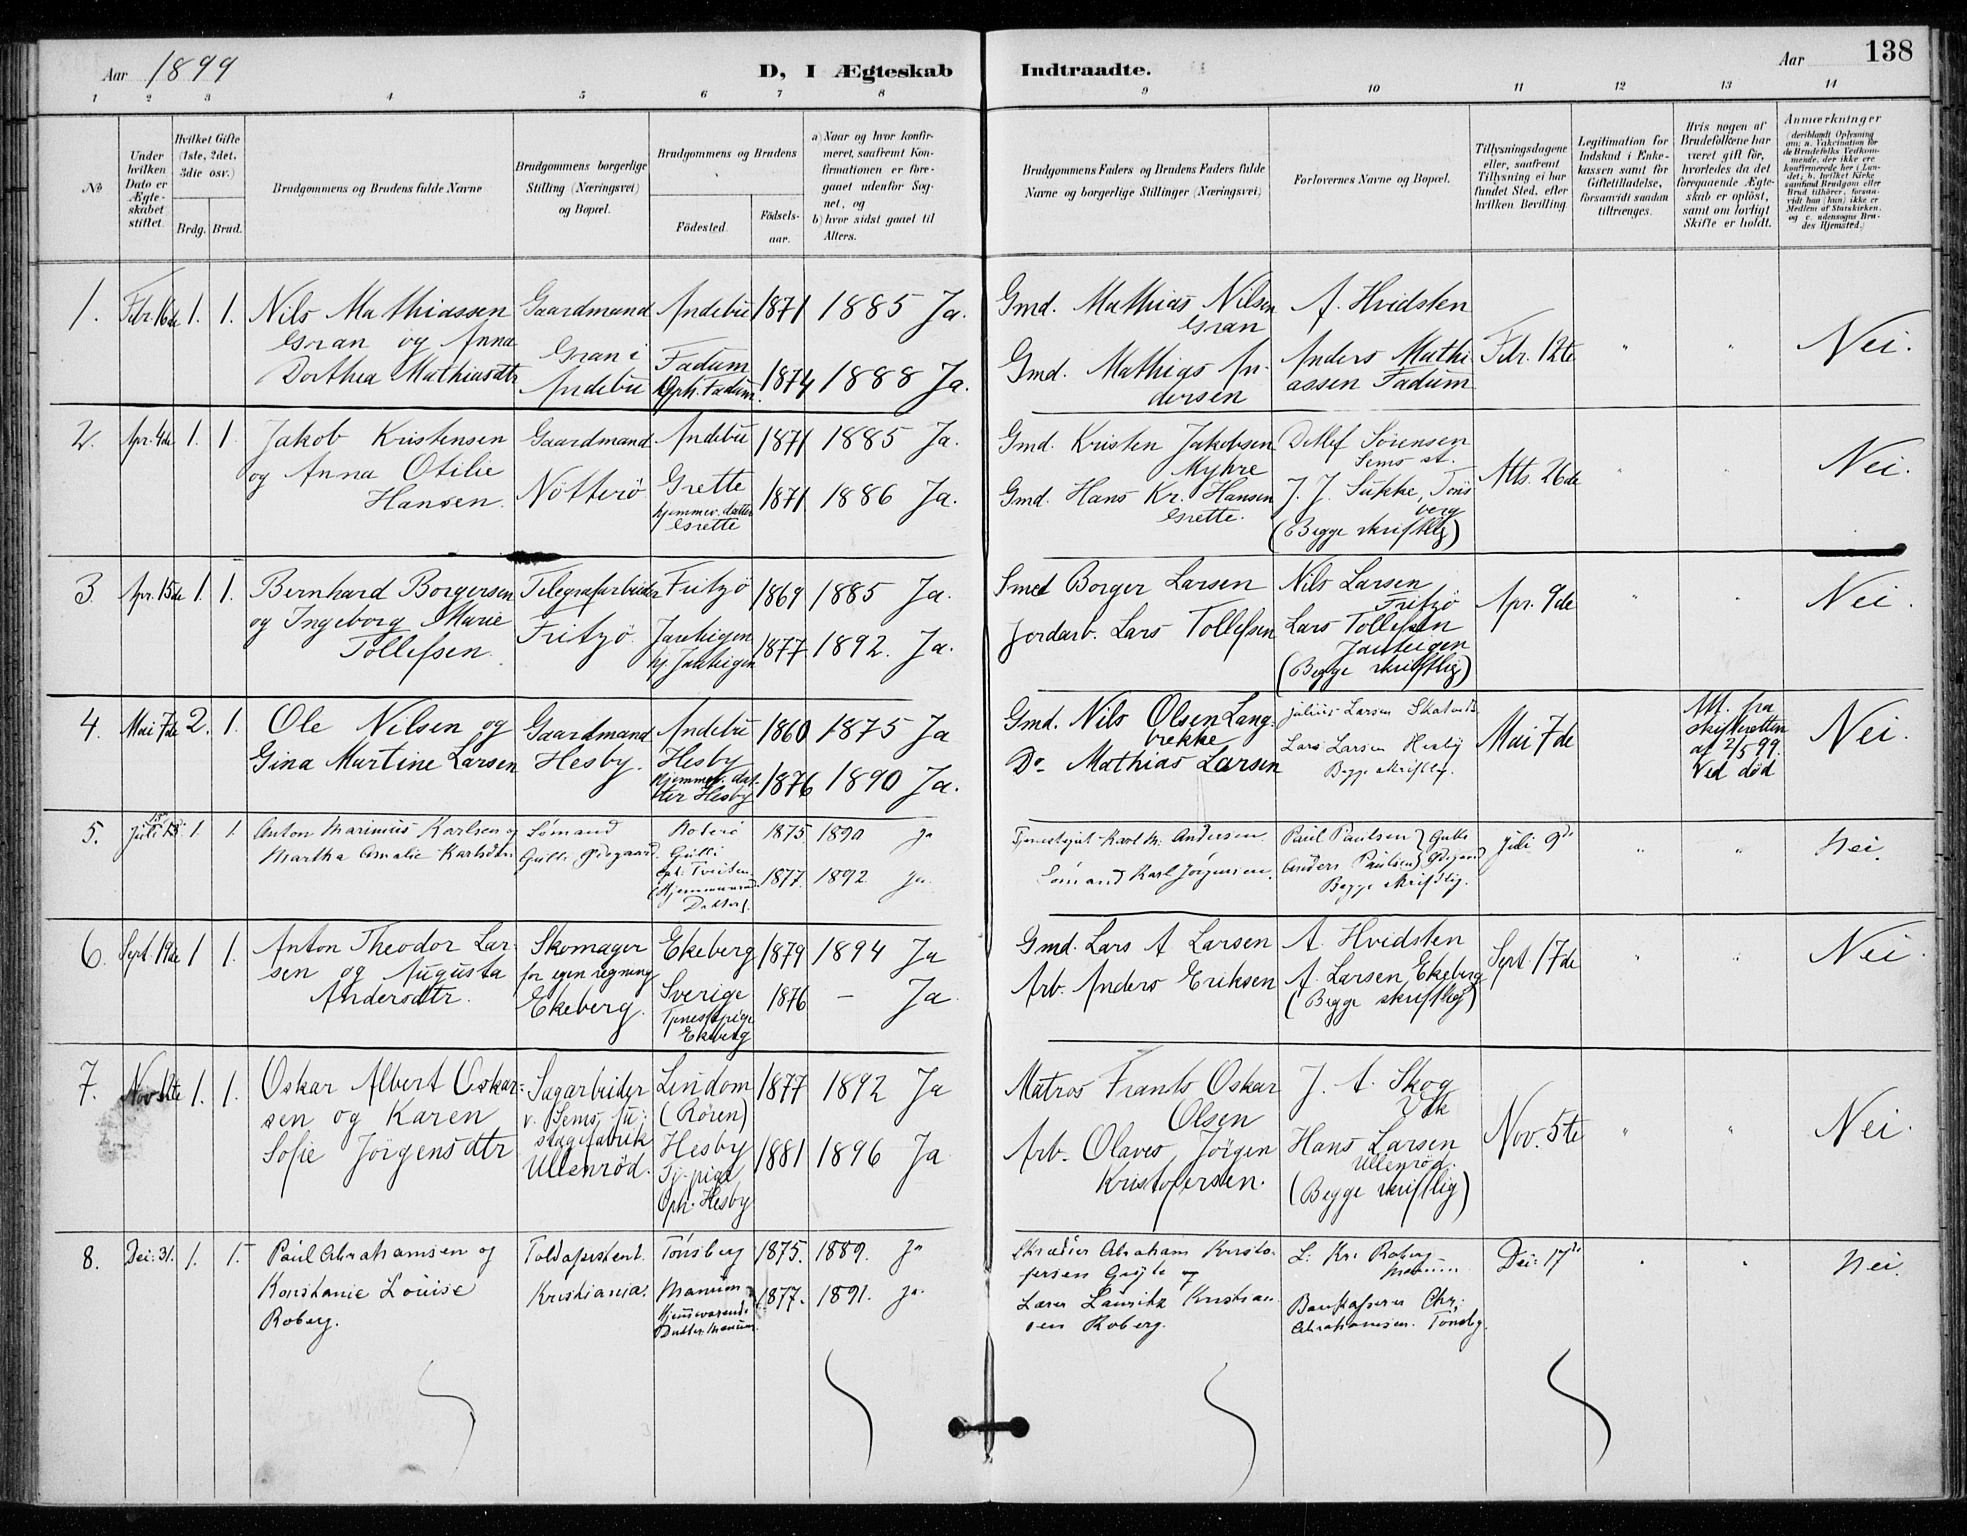 Aar 1899
D, I Ægteskab
Indtraadte.
Aar
138
1 2 3 4 5 6 7 8 9 10 11 12 13 14
№
Under
hvilken
Dato er
Ægte-
skabet
stiftet.
Hvilket Gifte
(1ste, 2det,
3die osv.)
Brdg. Brud.
Brudgommens og Brudens fulde Navne
Brudgommens borgerlige
Stilling (Næringsvei)
og Bopæl.
Brudgommens og Brudens
Fødested.
Fødsels-
aar.
a) Naar og hvor konfir-
meret, saafremt Kon-
firmationen er fore-
gaaet udenfor Sog-
net, og
b) hvor sidst gaaet til
Alters.
Brudgommens Faders og Brudens Faders fulde
Navne og borgerlige Stillinger (Næringsvei)
Forlovernes Navne og Bopæl.
Tillysningsdagene
eller, saafremt
Tillysning ei har
fundet Sted, efter
hvilken Bevilling
Legitimation for
Indskud i Enke-
kassen samt for
Giftetilladelse,
forsaavidt saadan
tiltrænges.
Hvis nogen af
Brudefolkene har
været gift før,
hvorledes da det
foregaaende Ægte-
skab er opløst,
samt om lovligt
Skifte er holdt.
Anmærkninger
(deriblandt Oplysning
om: a. Vakcination for
de Brudefolks Vedkom-
mende, der ikke ere
konfirmerede her i Lan-
det; b. hvilket Kirke-
samfund Brudgom eller
Brud tilhører, forsaa-
vidt han (hun) ikke er
Medlem af Statskirken,
og c. udensogns Bru-
des Hjemsted.)
1. Febr. 16de 1. 1. Nils Mathiassen
Gran og Anna
Dorthea Mathiasdtr
Gaardmand
Gran i
Andebu
Andebu 1871 1885 Ja.
Fadum
Oph. Fadum. 1874 1888 Ja.
Gmd. Mathias Nilsen
Gran
Gmd. Mathias An-
dersen
A. Hvidsten
Anders Mathi
assen Fadum
Febr. 12te " " Nei.
2. Apr. 4de 1. 1. Jakob Kristensen
og Anna Otilie
Hansen.
Gaardmand
Nötterö
Andebu 1871 1885 Ja.
Grette
hjemmev. datter
Grette 1871 1886 Ja.
Gmd. Kristen Jakobsen
Myhre
Gmd. Hans Kr. Hansen
Grette.
Detlef Sörensen
Sems st.
J. J. Sukke, Töns
berg
(Begge skriftlig)
Mts. 26de " " Nei.
3. Apr. 15de 1. 1. Bernhard Borgersen
og Ingeborg Marie
Tollefsen.
Telegrafarbeider
Fritzö
Fritzö 1869 1885 Ja.
1877 1892. Ja.
Smed Borger Larsen
Jordarb. Lars Tollefsen
Nils Larsen
Fritzö
Lars Tollefsen
(Begge skriftlig)
Apr. 9de " " Nei.
4. Mai 7de 2. 1. Ole Nilsen og
Gina Martine Larsen
Gaardmand
Hesby.
Andebu 1860 1875 Ja
Hesby
hjemmev. dat-
ter Hesby 1876 1890 Ja.
Gmd. Nils Olsen Lang-
brekke
Do Mathias Larsen
Julius Larsen
Lars Larsen Hesby
Begge skriftlig.
Mai 7de
Att. fra
skifteretten
af 2/5 99.
Ved død
Nei.
5. Juli 1. 1. Anton Marinius Karlsen og
Martha Amalie Karlsdtr.
Sömand
Gulli Ödegaard.
1875 1890 Ja
Gulli
oph. Tveiten
(Hjemmevær.
Datter). 1877. 1892. Ja.
Karl M. Andersen.
Sömand Karl Jörgensen.
Paul Paulsen } Gulli
Anders Paulsen } Ödegaard
Begge skriftlig.
Juli 9de " " Nei.
6. Sept. 19de 1 1. Anton Theodor Lar-
sen og Augusta
Andersdtr.
Skomager
for egen regning
Ekeberg.
Ekeberg 1879 1894 Ja
Sverige
Tjenestepige
Ekeberg 1876 — Ja
Gmd. Lars A Larsen
Arb. Anders Eriksen
A. Hvidsten
A. Larsen Ekeberg
(Begge skriftlig)
Sept. 17de " " Nei
7. Nov. 1. 1. Oskar Albert Oskar-
sen og Karen
Sofie Jörgensdtr
Sagarbeider
v. Sems
Ullenröd.
Lindom
(Rören) 1877 1892 Ja
Hesby
Tj. pige
Oph. Hesby 1881 1896 Ja
Matros Frants Oskar
Olsen
Arb. Olaves Jörgen
Kristofersen.
J. A. Skog
Hans Larsen
Ullenröd.
(Begge skriftlig)
Nov. 5te " " Nei.
8. Dec. 31. 1. 1. Paul Abrahamsen og
Konstanse Louise
Roberg.
Toldassistent.
Kristiania.
Tönsberg 1875. 1889. Ja
Manum
Hjemmeværende
Datter. Manum. 1877. 1891. Ja.
Skræder Abraham Kristo-
fersen og
Lærer Lauritz Kristian-
sen Roberg.
L. Kr. Roberg
Bankkasserer Chr.
Abrahamsen. Tönsbg.
Dec. 17de " " Nei.